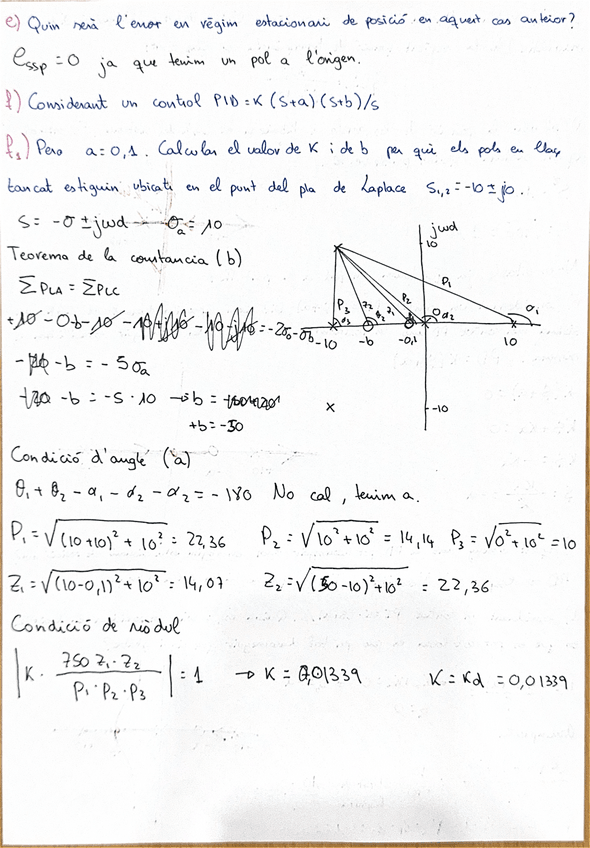 e) Quin serà l'error en règim estacionari de posició en aquest cas anterior?
essp = 0 ja que tenim un pol a l'origen.
f) Considerant un control PID = K (s+a) (s+b)/s
f1) Pero a=0,1. Calcular el valor de K i de b per què els pols en llaç
tancat estiguin ubicats en el punt del pla de Laplace S1,2 = -10 ± j10.
S = -σ ± jwd σa = 10
Teorema de la constancia (b)
∑PLA = ∑PLC
-b = -5σa
-b = -5 · 10 → b =
+b = -50
jwd
10
P1
P3
Z2
Z1
P2
α3
θ2
0
α2
α1
-10
-b
-0,1
10
-10
Condició d'angle (a)
θ1 + θ2 - α1 - α2 - α2 = -180 No cal, tenim a.
P1 = √((10+10)² + 10²) = 22,36 P2 = √(10² + 10²) = 14,14 P3 = √(0² + 10²) = 10
Z1 = √((10-0,1)² + 10²) = 14,07 Z2 = √((30-10)² + 10²) = 22,36
Condició de mòdul
|K · 750 Z1 · Z2 / P1 · P2 · P3| = 1 → K = 0,01339 K = Kd = 0,01339